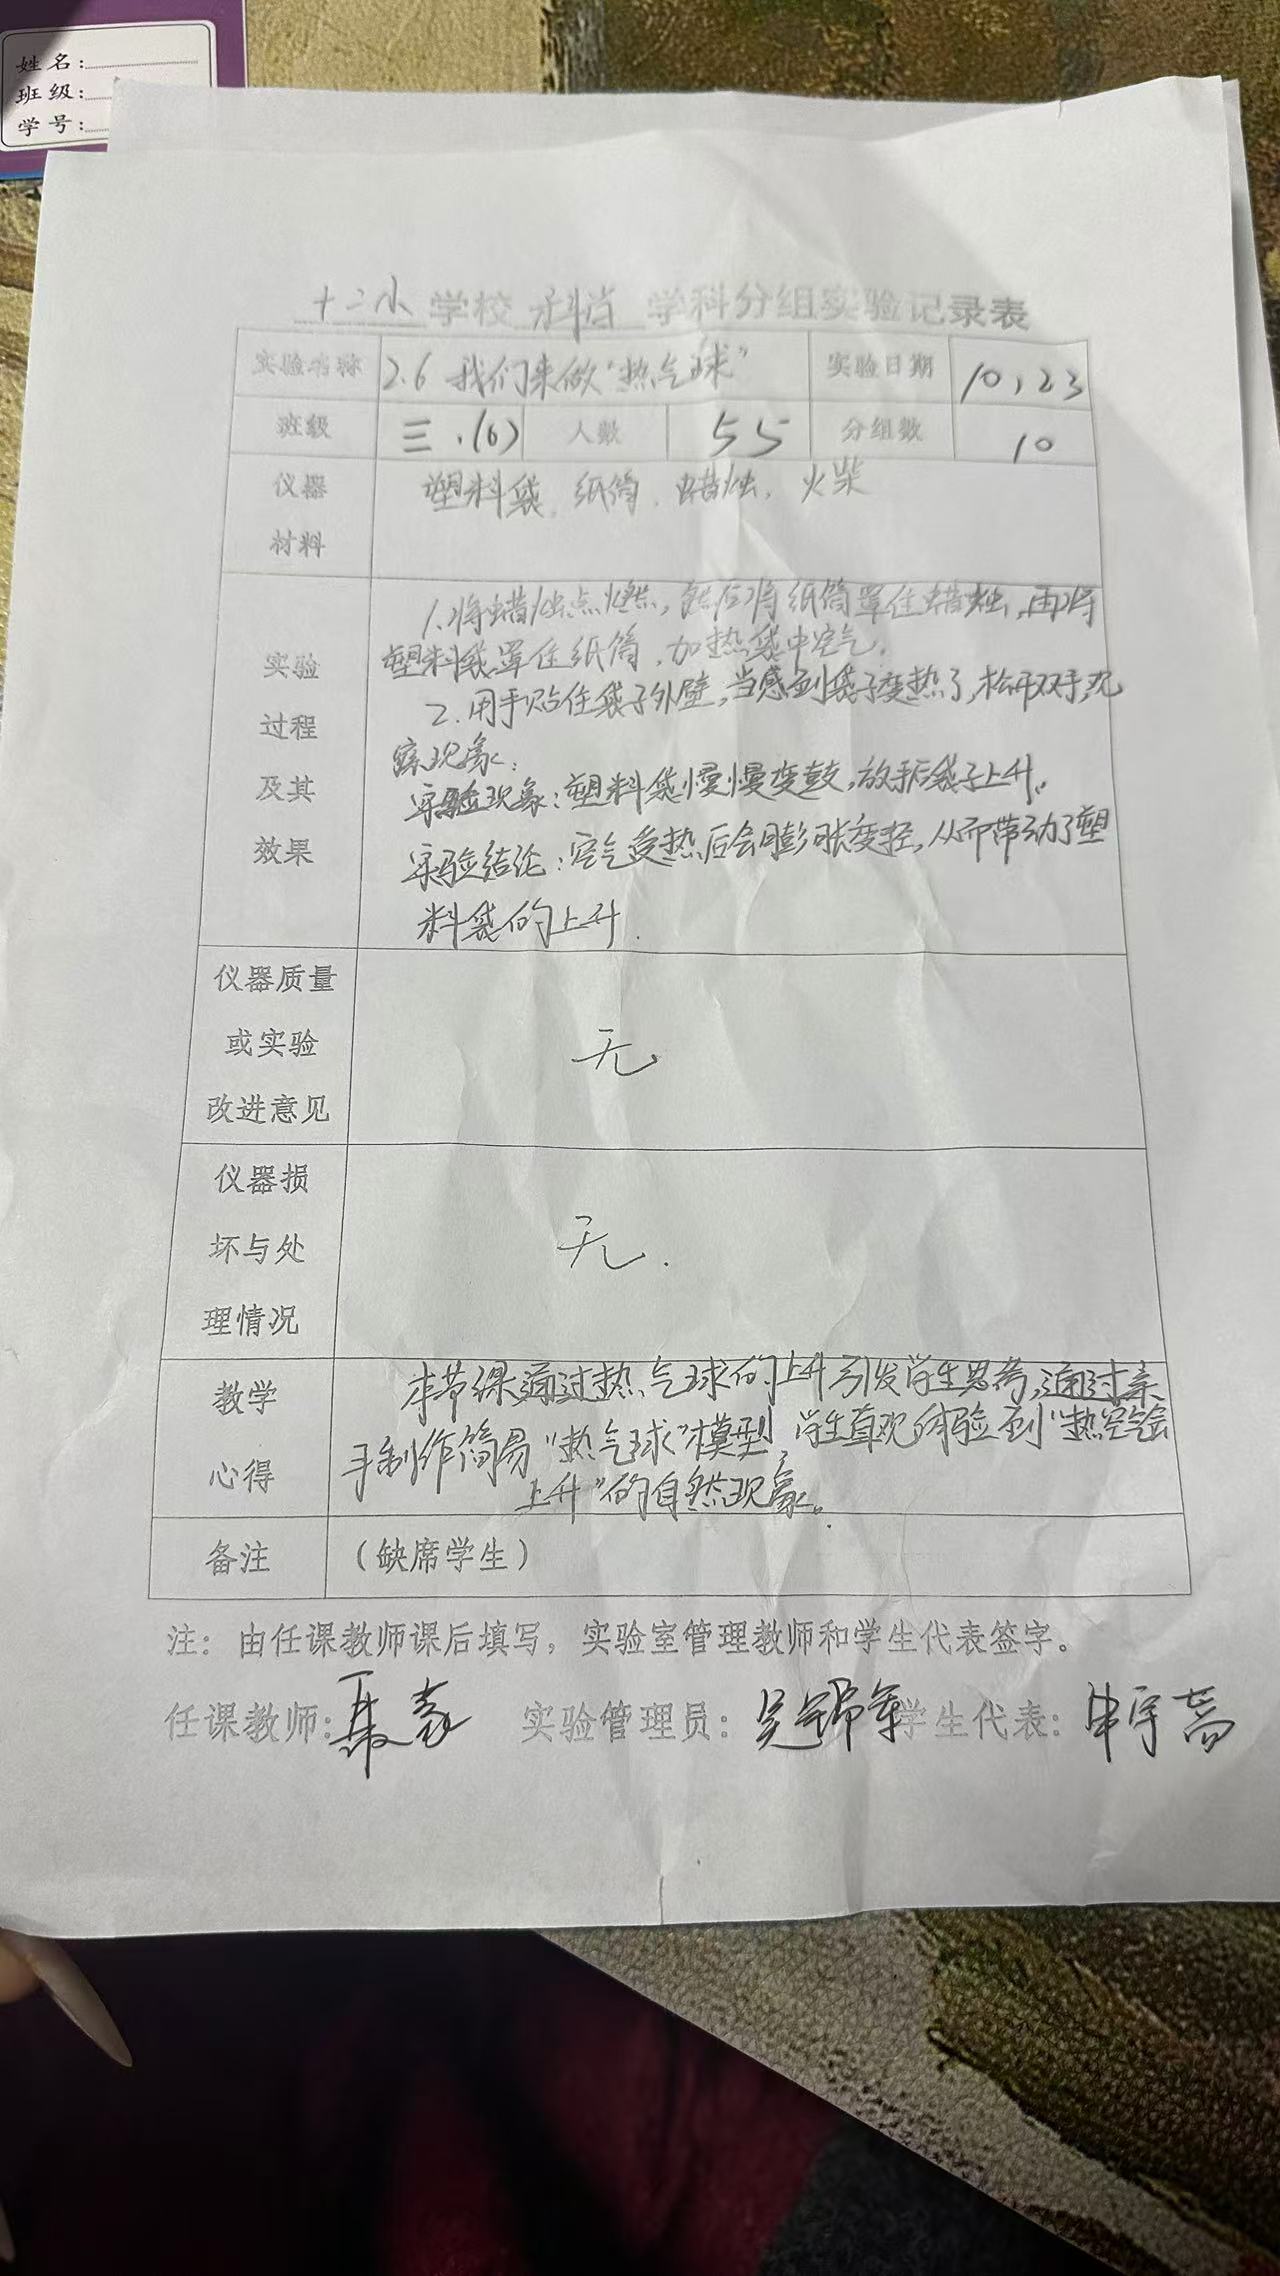 姓名:
班级:
学号:
十二小 学校 科学 学科分组实验记录表
实验名称 2.6 我们来做“热气球” 实验日期 10,23
班级 三.(6) 人数 55 分组数 10
仪器 材料 塑料袋、纸筒、蜡烛、火柴
实验 过程 及其 效果
1.将蜡烛点燃,然后将纸筒罩住蜡烛,再将
塑料袋罩住纸筒,加热袋中空气。
2.用手贴住袋子外壁,当感到袋子变热了,松开双手,观
察现象:
实验现象:塑料袋慢慢变鼓,放手后袋子上升。
实验结论:空气受热后会膨胀变轻,从而带动了塑
料袋的上升.
仪器质量
或实验 无
改进意见
仪器损
坏与处 无.
理情况
教学 心得
本节课通过热气球的上升引发学生思考,通过亲
手制作简易“热气球”模型,学生直观体验到“热空气会
上升”的自然现象。
备注 (缺席学生)
注:由任课教师课后填写,实验室管理教师和学生代表签字。
任课教师: 实验管理员: 学生代表: